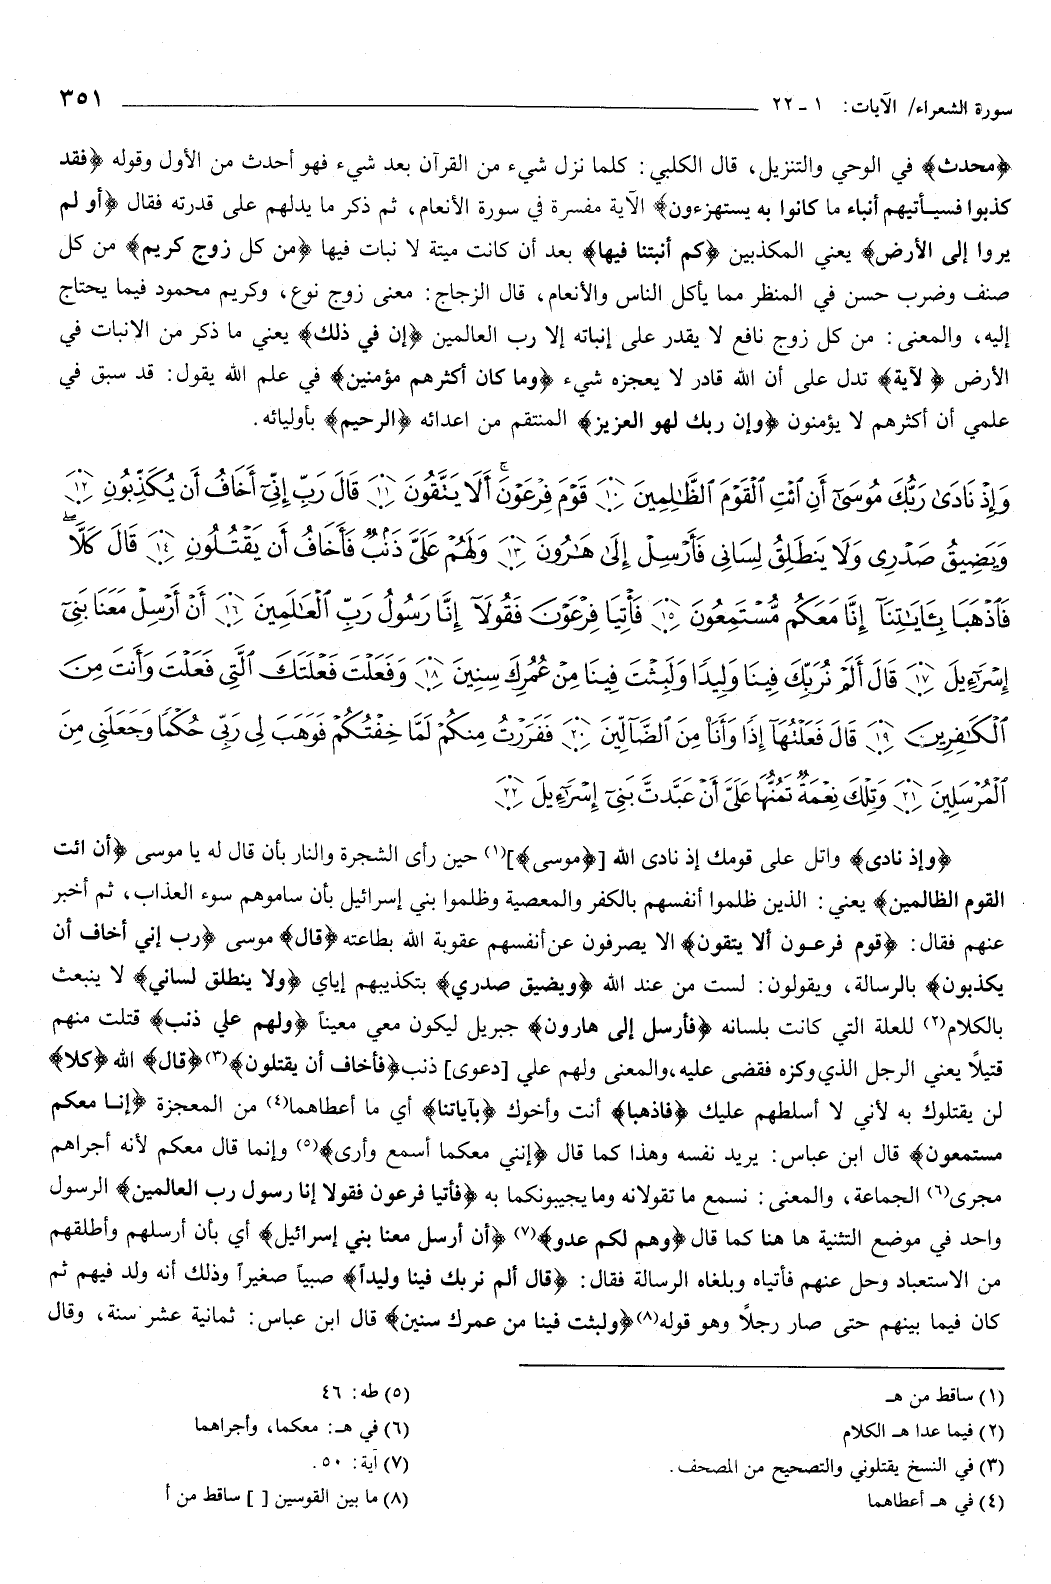 سورة الشعراء/ الآيات: ١ - ٢٢ ٣٥١
﴿محدث﴾ في الوحي والتنزيل، قال الكلبي: كلما نزل شيء من القرآن بعد شيء فهو أحدث من الأول وقوله ﴿فقد
كذبوا فسيأتيهم أنباء ما كانوا به يستهزءون﴾ الآية مفسرة في سورة الأنعام، ثم ذكر ما يدلهم على قدرته فقال ﴿أو لم
يروا إلى الأرض﴾ يعني المكذبين ﴿كم أنبتنا فيها﴾ بعد أن كانت ميتة لا نبات فيها ﴿من كل زوج كريم﴾ من كل
صنف وضرب حسن في المنظر مما يأكل الناس والأنعام، قال الزجاج: معنى زوج نوع، وكريم محمود فيما يحتاج
إليه، والمعنى: من كل زوج نافع لا يقدر على إنباته إلا رب العالمين ﴿إن في ذلك﴾ يعني ما ذكر من الانبات في
الأرض ﴿لآية﴾ تدل على أن الله قادر لا يعجزه شيء ﴿وما كان أكثرهم مؤمنين﴾ في علم الله يقول: قد سبق في
علمي أن أكثرهم لا يؤمنون ﴿وإن ربك لهو العزيز﴾ المنتقم من اعدائه ﴿الرحيم﴾ بأوليائه.
وَإِذْ نَادَىٰ رَبُّكَ مُوسَىٰٓ أَنِ ٱئْتِ ٱلْقَوْمَ ٱلظَّٰلِمِينَ ١٠ قَوْمَ فِرْعَوْنَ ۚ أَلَا يَتَّقُونَ ١١ قَالَ رَبِّ إِنِّىٓ أَخَافُ أَن يُكَذِّبُونِ ١٢
وَيَضِيقُ صَدْرِى وَلَا يَنطَلِقُ لِسَانِى فَأَرْسِلْ إِلَىٰ هَٰرُونَ ١٣ وَلَهُمْ عَلَىَّ ذَنۢبٌ فَأَخَافُ أَن يَقْتُلُونِ ١٤ قَالَ كَلَّا ۖ
فَٱذْهَبَا بِـَٔايَٰتِنَآ إِنَّا مَعَكُم مُّسْتَمِعُونَ ١٥ فَأْتِيَا فِرْعَوْنَ فَقُولَآ إِنَّا رَسُولُ رَبِّ ٱلْعَٰلَمِينَ ١٦ أَنْ أَرْسِلْ مَعَنَا بَنِىٓ
إِسْرَٰٓءِيلَ ١٧ قَالَ أَلَمْ نُرَبِّكَ فِينَا وَلِيدًا وَلَبِثْتَ فِينَا مِنْ عُمُرِكَ سِنِينَ ١٨ وَفَعَلْتَ فَعْلَتَكَ ٱلَّتِى فَعَلْتَ وَأَنتَ مِنَ
ٱلْكَٰفِرِينَ ١٩ قَالَ فَعَلْتُهَآ إِذًا وَأَنَا۠ مِنَ ٱلضَّآلِّينَ ٢٠ فَفَرَرْتُ مِنكُمْ لَمَّا خِفْتُكُمْ فَوَهَبَ لِى رَبِّى حُكْمًا وَجَعَلَنِى مِنَ
ٱلْمُرْسَلِينَ ٢١ وَتِلْكَ نِعْمَةٌ تَمُنُّهَا عَلَىَّ أَنْ عَبَّدتَّ بَنِىٓ إِسْرَٰٓءِيلَ ٢٢
﴿وإذ نادى﴾ واتل على قومك إذ نادى الله [﴿موسى﴾](١) حين رأى الشجرة والنار بأن قال له يا موسى ﴿أن ائت
القوم الظالمين﴾ يعني: الذين ظلموا أنفسهم بالكفر والمعصية وظلموا بني إسرائيل بأن ساموهم سوء العذاب، ثم أخبر
عنهم فقال: ﴿قوم فرعون ألا يتقون﴾ الا يصرفون عن أنفسهم عقوبة الله بطاعته ﴿قال﴾ موسى ﴿رب إني أخاف أن
يكذبون﴾ بالرسالة، ويقولون: لست من عند الله ﴿ويضيق صدري﴾ بتكذيبهم إياي ﴿ولا ينطلق لساني﴾ لا ينبعث
بالكلام(٢) للعلة التي كانت بلسانه ﴿فأرسل إلى هارون﴾ جبريل ليكون معي معيناً ﴿ولهم علي ذنب﴾ قتلت منهم
قتيلاً يعني الرجل الذي وكزه فقضى عليه، والمعنى ولهم علي [دعوى] ذنب ﴿فأخاف أن يقتلون﴾(٣) ﴿قال﴾ الله ﴿كلا﴾
لن يقتلوك به لأني لا أسلطهم عليك ﴿فاذهبا﴾ أنت وأخوك ﴿بآياتنا﴾ أي ما أعطاهما(٤) من المعجزة ﴿إنا معكم
مستمعون﴾ قال ابن عباس: يريد نفسه وهذا كما قال ﴿إنني معكما أسمع وأرى﴾(٥) وإنما قال معكم لأنه أجراهم
مجرى(٦) الجماعة، والمعنى: نسمع ما تقولانه وما يجيبونكما به ﴿فأتيا فرعون فقولا إنا رسول رب العالمين﴾ الرسول
واحد في موضع التثنية ها هنا كما قال ﴿وهم لكم عدو﴾(٧) ﴿أن أرسل معنا بني إسرائيل﴾ أي بأن أرسلهم وأطلقهم
من الاستعباد وحل عنهم فأتياه وبلغاه الرسالة فقال: ﴿قال ألم نربك فينا وليداً﴾ صبياً صغيراً وذلك أنه ولد فيهم ثم
كان فيما بينهم حتى صار رجلاً وهو قوله(٨) ﴿ولبثت فينا من عمرك سنين﴾ قال ابن عباس: ثمانية عشر سنة، وقال
(١) ساقط من هـ
(٢) فيما عدا هـ الكلام
(٣) في النسخ يقتلوني والتصحيح من المصحف.
(٤) في هـ أعطاهما
(٥) طه: ٤٦
(٦) في هـ: معكما، وأجراهما
(٧) آية: ٥٠.
(٨) ما بين القوسين [ ] ساقط من أ